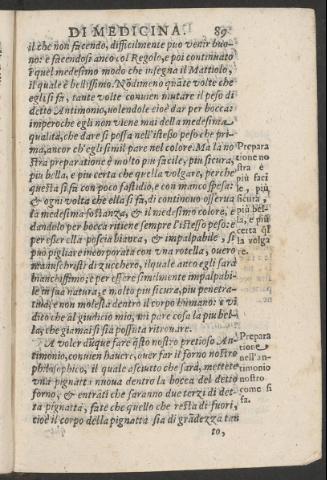 DI MEDICINA. 89
il che non facendo, difficilmente può venir buo-
no: e facendosi anco col Regolo, e poi continuato
ĩ quel medesimo modo che insegna il Mattiolo,
il quale è bellissimo. Nõdimeno quãte volte che
egli si fa, tante volte convien mutare il peso di
detto Antimonio, volendole cioè dar per bocca:
imperoche egli non viene mai della medesima
qualità, che dare si possa nell'istesso peso che pri-
ma, ancor ch'egli simil pare nel colore. Ma la no
stra preparatione è molto piu facile, piu sicura,
piu bella, e piu certa che quella volgare, perche
questa si fa con poco fastidio, e con manco spesa:
& ogni volta che ella si fa, di continuo osserva
la medesima sostanza, & il medesimo colore, e
dandolo per bocca ritiene sempre l'istesso peso: e
per esser ella poscia bianca, & impalpabile, si
può pigliare incorporata con vna rotella, overo
manuschristi di zucchero, il quale anco egli sarà
bianchissimo; e per essere similmente impalpabi-
le in sua natura, è molto piu sicura, piu penetra-
tiua, e non molesta dentro il corpo humano: e vi
dito che al giuicio mio, mi pare cosa la piu bel-
la, che giamai si sia possuta ritrouare.
A voler dũque fare q̃sto nostro pretioso An-
timonio, conuien hauere, ouer far il forno nostro
philosophico, il quale asciutto che sarà, mettete
vna pignatta nuoua dentro la bocca del detto
forno, & entrati che saranno due terzi di det-
ta pignatta, fate che quello che resta di fuori,
cioè il corpo della pignatta sia di grãdezza tan
to,
Prepara
tione no
stra è
più faci
le, più
sicura,
più bel-
la, e più
certa q̃l
la volga
re.
Prepara
tione
nell'an-
timonio
nostro
come si
fa.